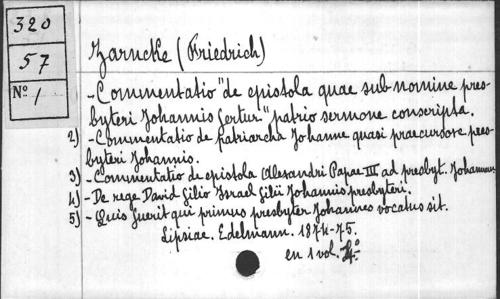 320
57
N° 1
Zarncke (Friedrich)
- Commentatio "de epistola quae sub nomine pres-
byteri Johannis fertur" patrio sermone conscripta.
2) - Commentatio de patriarcha Johanne quasi praecursore pres-
byteri Johannis.
3) - Commentatio de epistola Alexandri Papae III ad presbyt. Johannem
4) - De rege David filio Israel filii Johannis presbyteri.
5) - Quis fuerit qui primus presbyter Johannes vocatus sit.
Lipsiae. Edelmann. 1874-75.
en 1 vol. 4°.